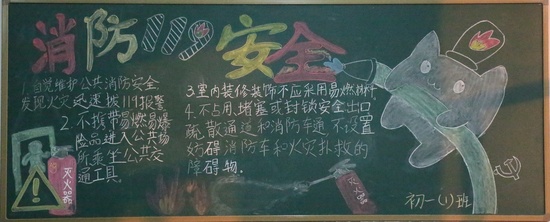 消防119安全
1.自觉维护公共消防安全
发现火灾迅速拨119报警
2.不携带易燃易爆
险品进入公共场
所乘坐公共交
通工具
3.室内装修装饰不应采用易燃材料
4.不占用、堵塞或封锁安全出口
疏散通道和消防车通不设置
妨碍消防车和火灾扑救的
障碍物.
灭火器
灭火器
初一(1)班